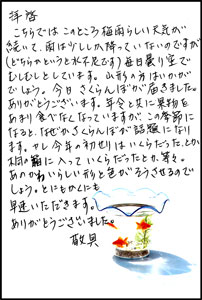 拝啓
こちらではこのところ梅雨らしい天気が
続いて、雨は少ししか降っていないのですが
(どちらかというと水不足です)毎日曇り空で
むしむしとしています。山形の方はいかがで
でしょう。今日さくらんぼが届きました。
ありがとうございます。年令と共に果物を
あまり食べなくなっていますが、この季節に
なると、なぜかさくらんぼが話題になり
ます。やし今年の初せりはいくらだった、とか
桐の箱に入っていくらだったとか、等々。
あのかわいらしい形と色がそうさせるので
しょう。とにもかくにも
早速いただきます。
ありがとうございました。
敬具